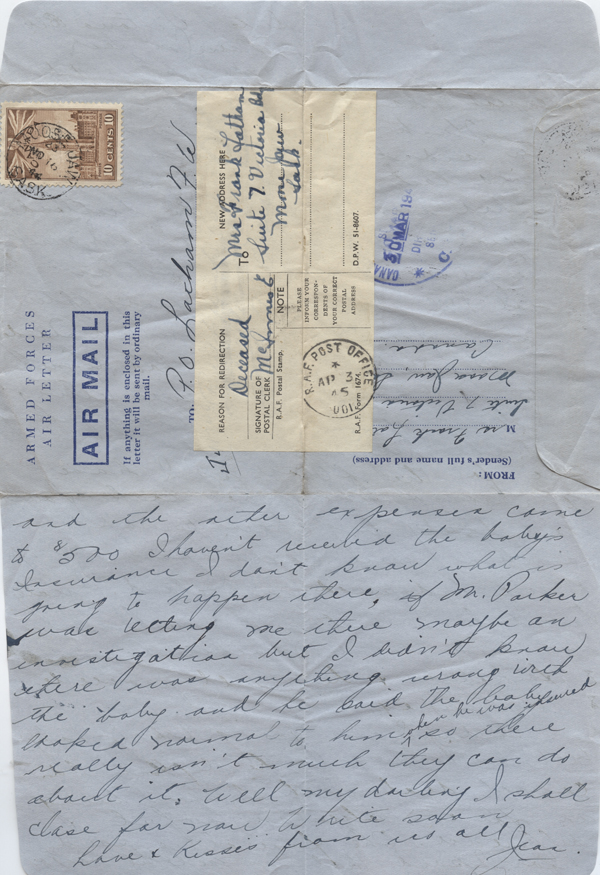 10 CENTS 10
MOOSE JAW
SASK.
ARMED FORCES
AIR LETTER
AIR MAIL
If anything is enclosed in this
letter it will be sent by ordinary
mail.
P.O. Latham F W
REASON FOR REDIRECTION
Deceased
SIGNATURE OF
POSTAL CLERK
R.A.F. Postal Stamp.
NEW ADDRESS HERE
TO Mrs Frank Latham
Suite 7 Victoria
Moose Jaw
Sask.
NOTE
PLEASE
INFORM YOUR
CORRESPON-
DENTS OF
YOUR CORRECT
POSTAL
ADDRESS
D.P.W. 51-8607.
R.A.F. Form 1674.
R.A.F. POST OFFICE
AP 3
45
001
30 MAR 194
FROM:
(Sender's full name and address)
Mrs Frank
Suite 7 Victoria
Moose Jaw
Canada.
and the other expenses came
to $500 I haven't received the baby's
Insurance I don't know what is
going to happen there, if Mr. Parker
was letting me there maybe an
investigation but I didn't know
there was anything wrong with
the baby and he said the baby
looked normal to him when he was insured so there
really isn't much they can do
about it. Well my darling I shall
close for now Write soon
Love & Kisses from us all
Jean.